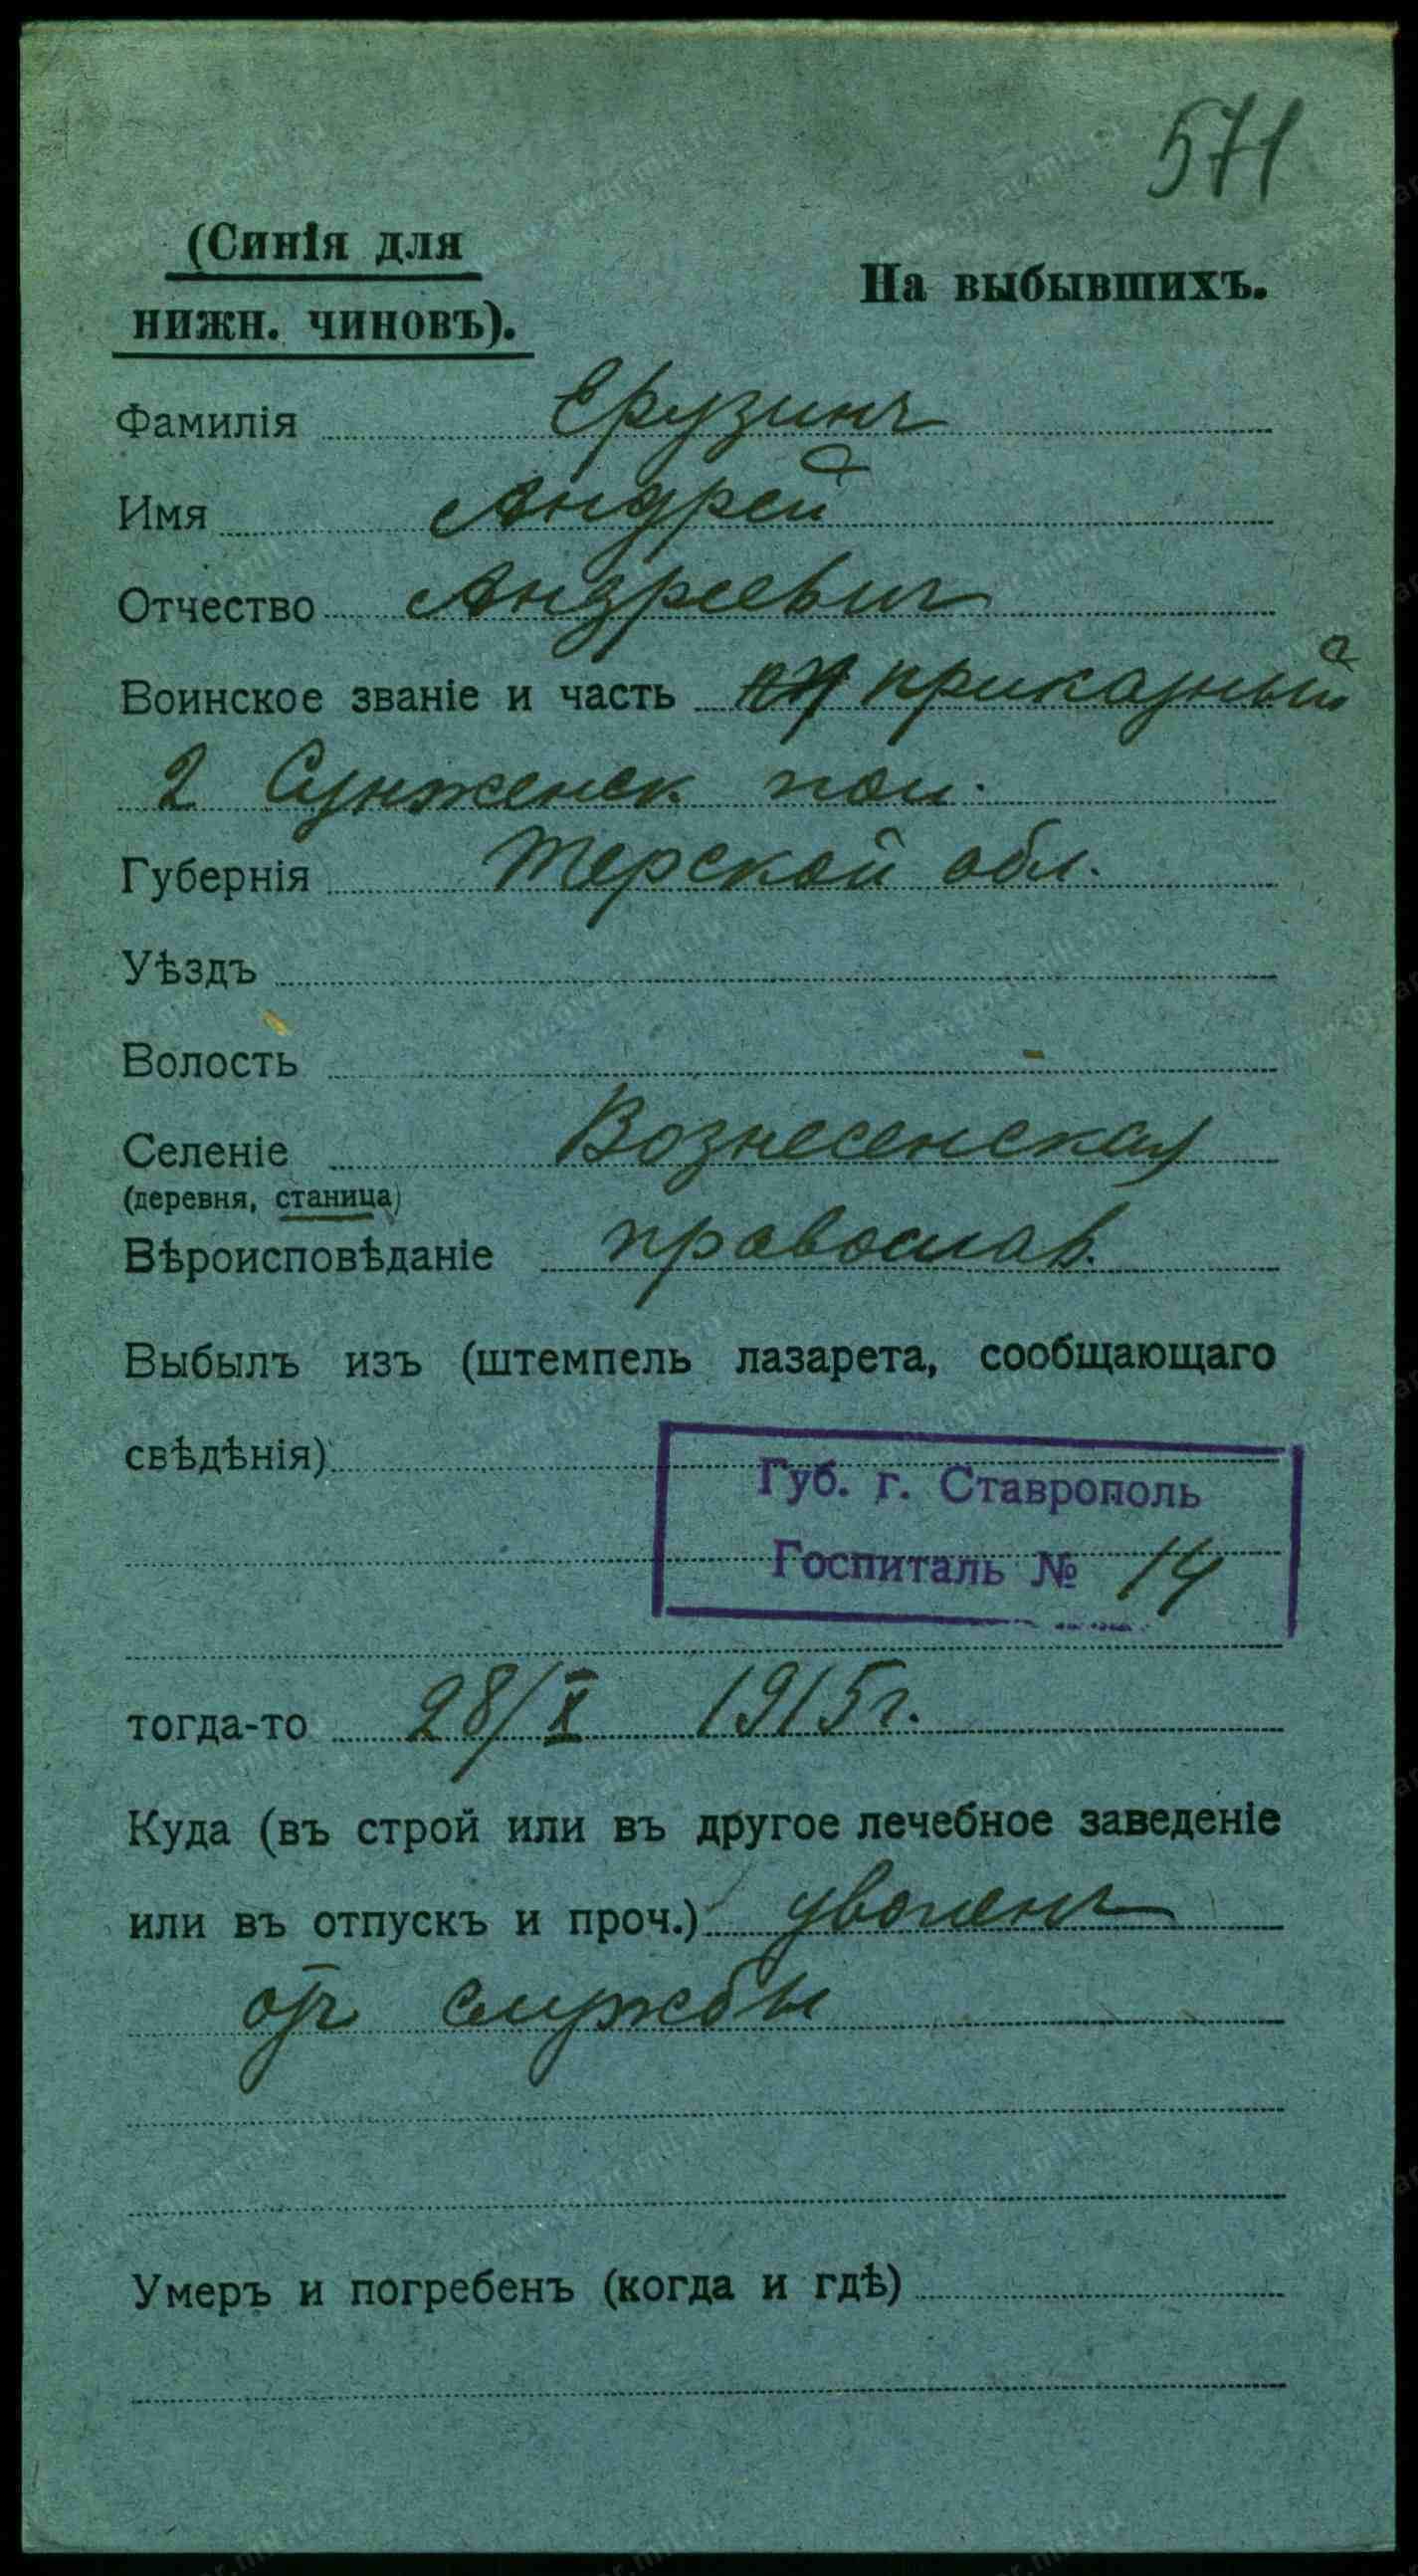 571
(Синія для
нижн. чиновъ).
На выбывшихъ.
Фамилія Ерузинъ
Имя Андрей
Отчество Андреевич
Воинское званіе и часть приказный
2 Сунженск пол.
Губернія Терской обл.
Уѣздъ
Волость
Селеніе Вознесенская
(деревня, станица)
Вѣроисповѣданіе православ.
Выбылъ изъ (штемпель лазарета, сообщающаго
свѣдѣнія)
Губ. г. Ставрополь
Госпиталь № 14
тогда-то 28/X 1915 г.
Куда (въ строй или въ другое лечебное заведеніе
или въ отпускъ и проч.) уволенъ
отъ службы
Умеръ и погребенъ (когда и гдѣ)